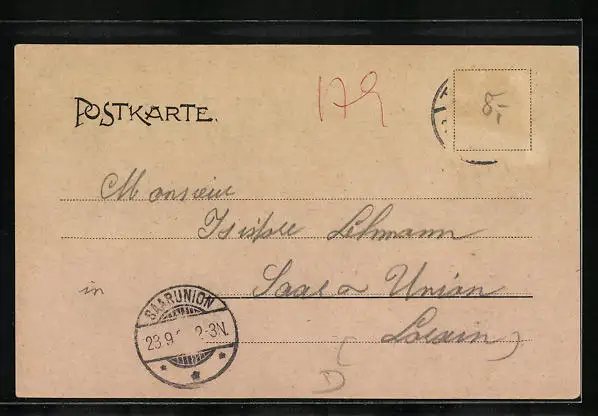 POSTKARTE.
8,-
Monsieur
Lehmann
in Saar Union
SAARUNION
23.9. 2-3N.
(Lorain)
D